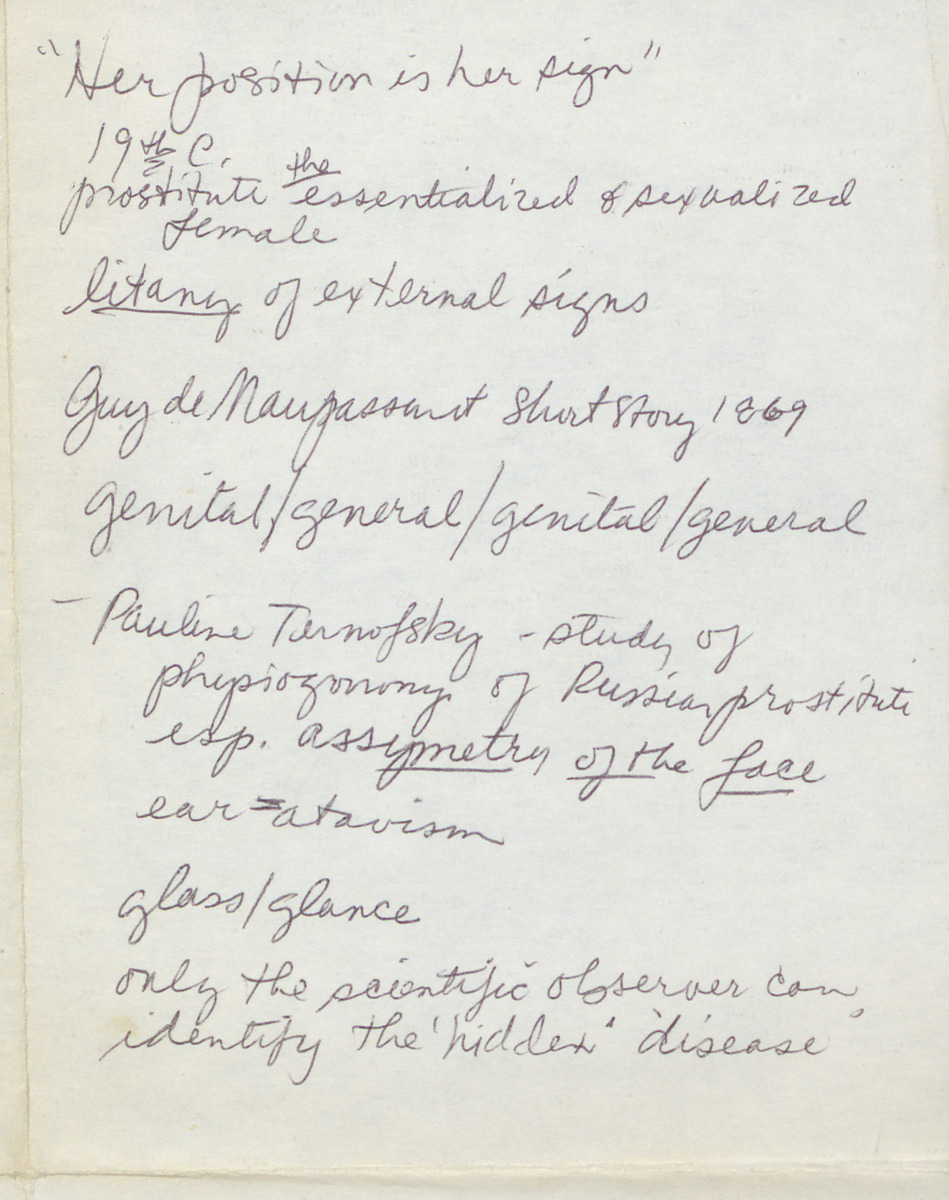 "Her position is her sign"
19th C.
prostitute the essentialized & sexualized
female
litany of external signs
Guy de Maupassant Short Story 1869
genital/general/genital/general
- Pauline Tarnofsky - study of
physiogonomy of Russian prostitute
esp. assymetry of the face
ear = atavism
glass/glance
only the scientific observer can
identify the "hidden" "disease"